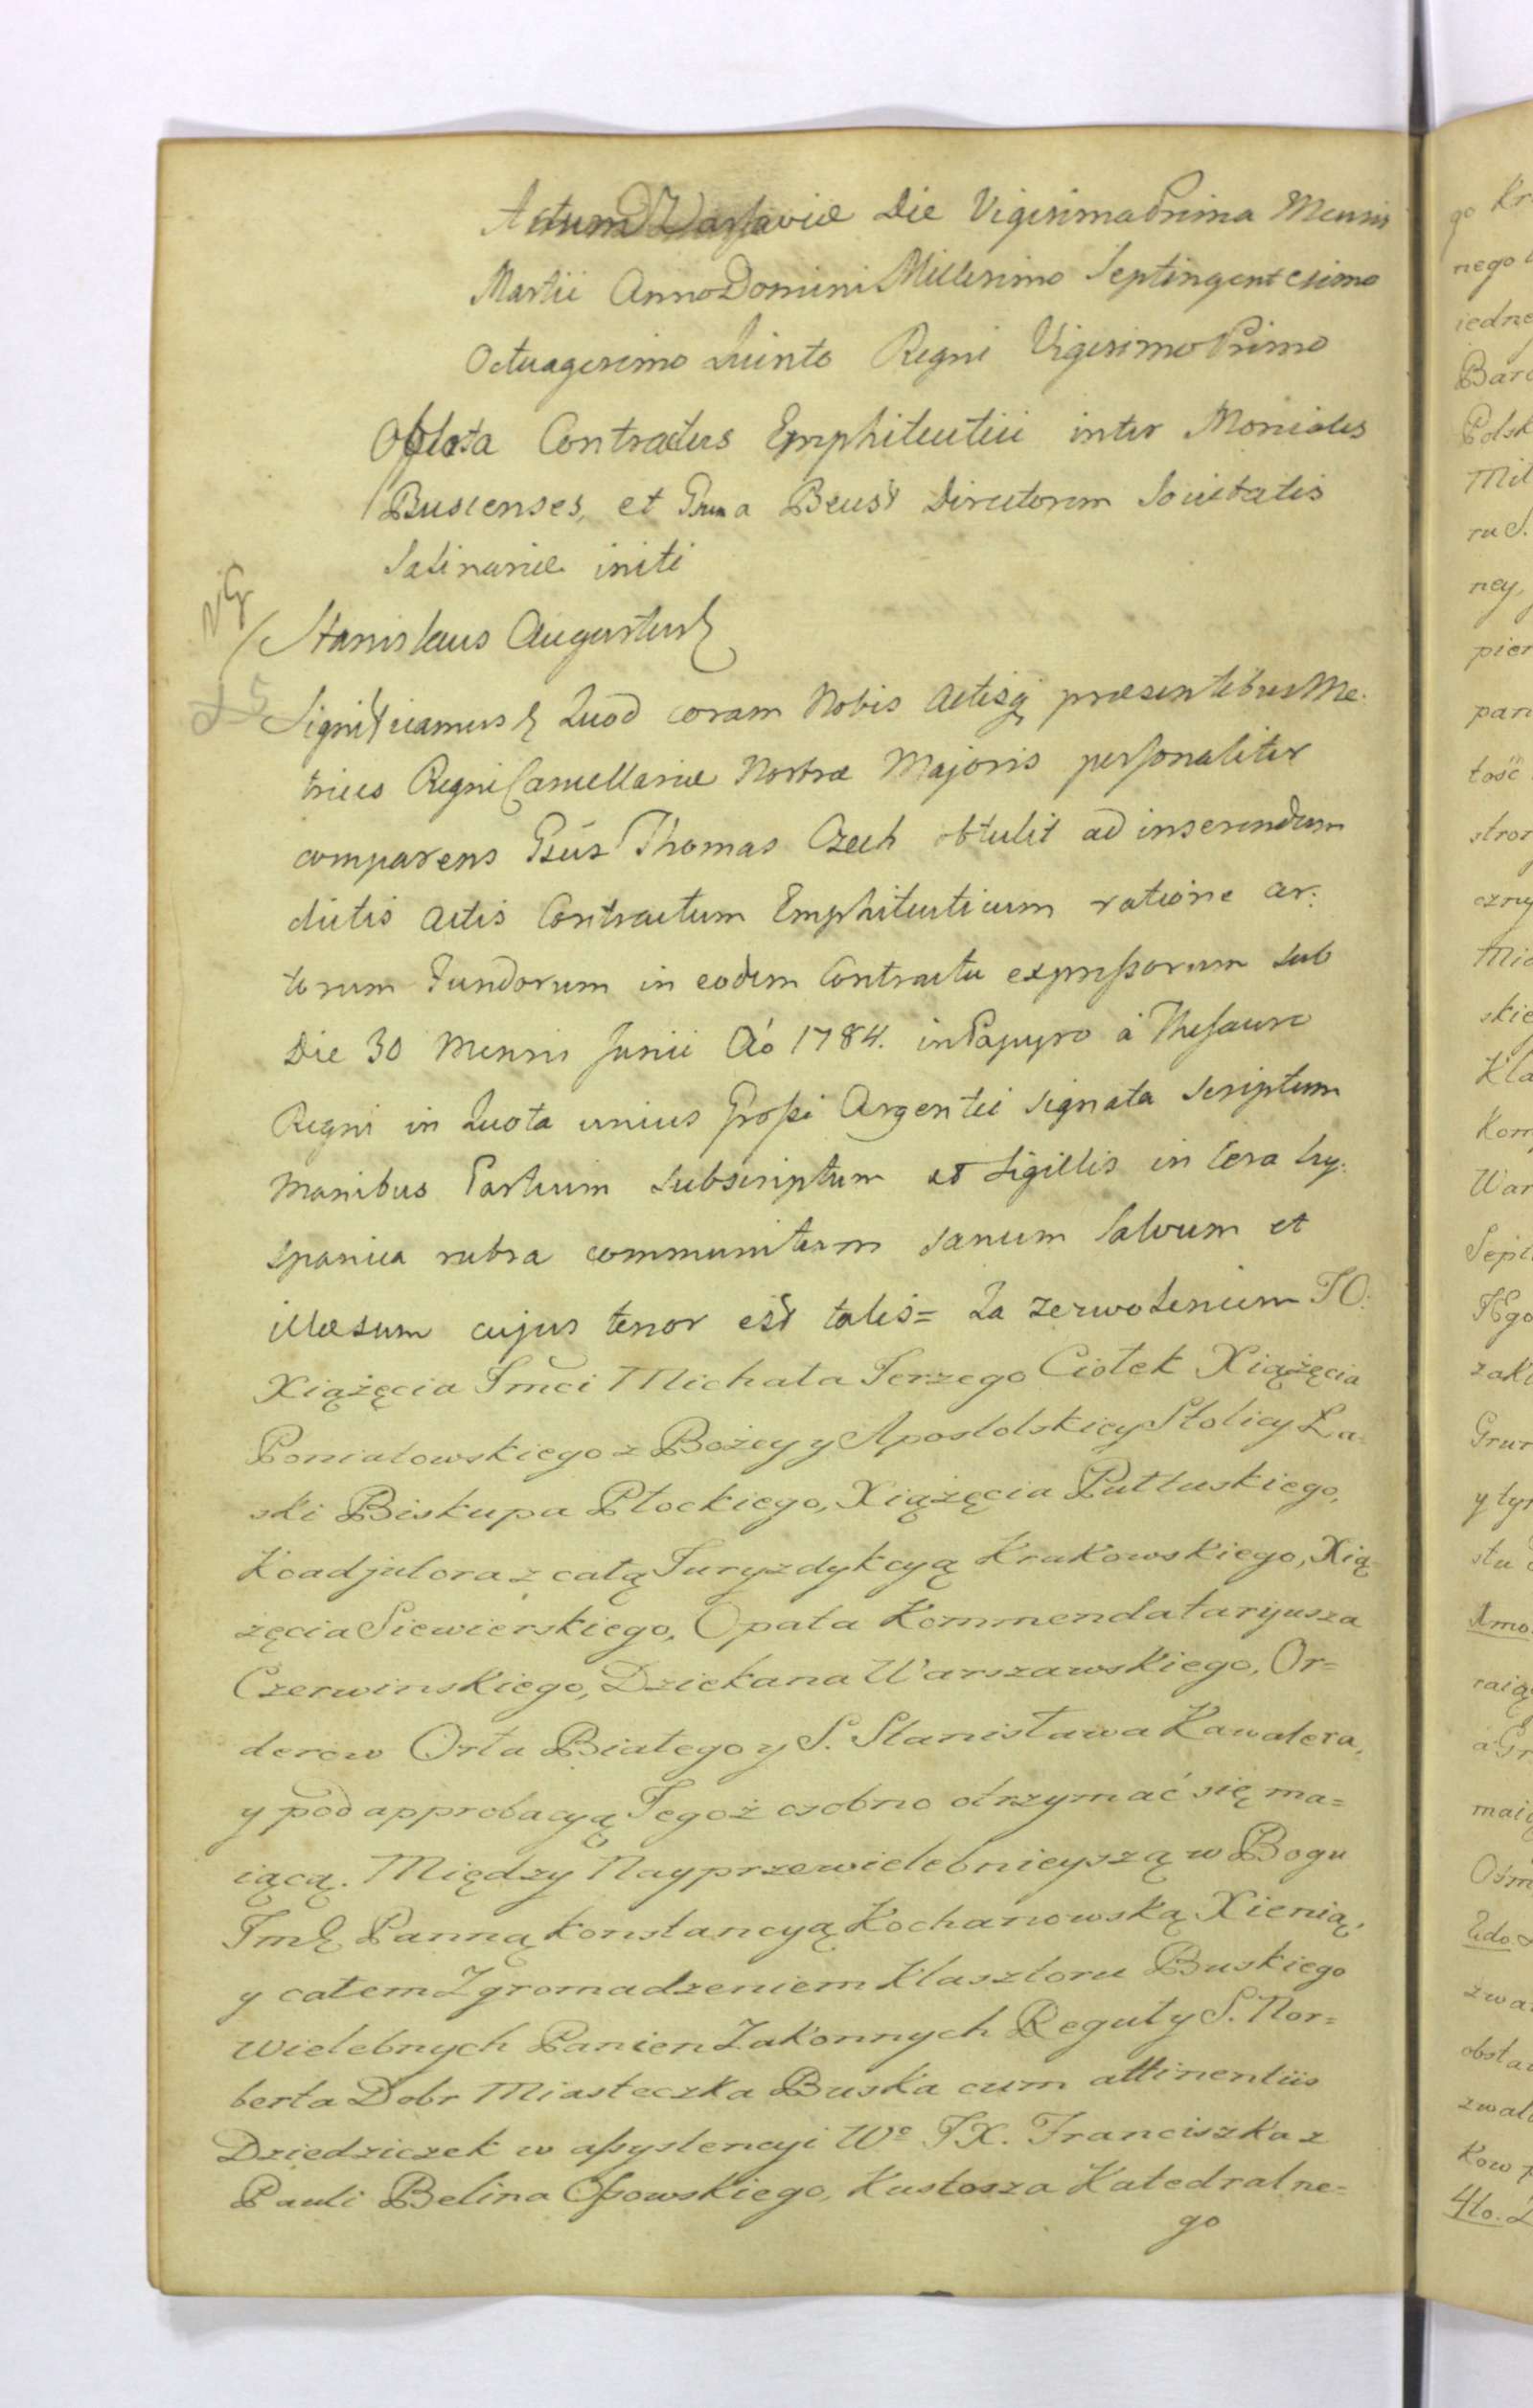 Actum Varsaviæ Die Vigesima Prima Mensis
Martii Anno Domini Millesimo Septingentesimo
Octuagesimo Quinto Regni Vigesimo Primo
Oblata Contractus Emphiteutici inter Moniales
Buscenses, et Beust Directorem Societatis
Salinariæ initi
Stanislaus Augustus
Significamus Quod coram Nobis Actisq præsentibus Me.
trices Regni Cancellariæ Nostræ Majoris personaliter
comparens Thomas Czech obtulit ad inserendum
dictis Actis Contractum Emphiteuticum ratione cer:
torum Fundorum in eodem Contractu expressorum sub
Die 30 Mensis Junii Aō 1784. in Papyro à Thesauro
Regni in Quota unius Grossi Argentei signata scriptum
Manibus Partium subscriptum et Sigillis in Cera hy:
spanica rubra communitum sanum Salvum et
illæsum cujus tenor est talis= Za zezwoleniem JO.
Xiążęcia Jmci Michała Jerzego Ciołek Xiążęcia
Poniatowskiego z Bożey y Apostolskiey Stolicy Ła-
ski Biskupa Płockiego, Xiążęcia Pułtuskiego,
Koadjutora z całą Juryzdykcyą Krakowskiego, Xią-
żęcia Siewierskiego, Opata Kommendataryusza
Czerwinskiego, Dziekana Warszawskiego, Or=
derow Orła Białego y S. Stanisława Kawalera,
y pod approbacyą Tegoż osobno otrzymać się ma=
iącą. Między Nayprzewielebnieyszą w Bogu
Jmć Panną Konstancyą Kochanowską Xienią,
y całem Zgromadzeniem Klasztoru Buskiego
Wielebnych Panien Zakonnych Reguły S. Nor=
berta Dobr Miasteczka Buska cum attinentiis
Dziedziczek w assystencyi W° JX. Franciszka z
Pauli Belina Ossowskiego, Kustosza Katedralne=
go